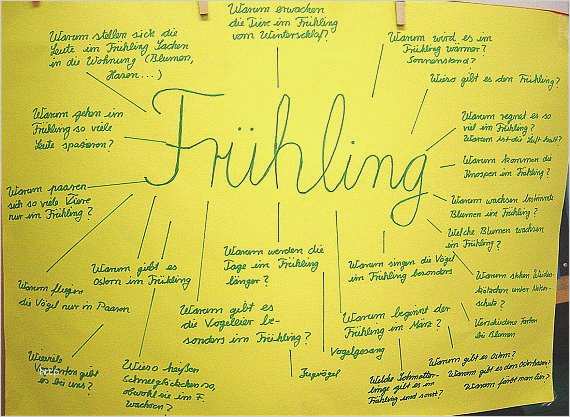 Warum erwachen
die Tiere im Frühling
vom Winterschlaf?
Warum stellen sich die
Leute im Frühling Sachen
in die Wohnung (Blumen,
Hasen...)
Warum wird es im
Frühling wärmer?
Sonnenstand?
Wieso gibt es den Frühling?
Warum gehen im
Frühling so viele
Leute spazieren?
Frühling
Warum regnet es so
viel im Frühling?
Warum ist die Luft kalt?
Warum kommen die
Knospen im Frühling?
Warum paaren
sich so viele Tiere
nur im Frühling?
Warum wachsen bestimmte
Blumen im Frühling?
Welche Blumen wachsen
im Frühling?
Warum gibt es
Ostern im Frühling
Warum werden die
Tage im Frühling
länger?
Warum singen die Vögel
im Frühling besonders
Warum stehen
unter Natur-
schutz?
Warum fliegen
die Vögel nur in Paaren
Warum gibt es
die Vogeleier be-
sonders im Frühling?
Warum beginnt der
Frühling im März?
Verschiedene Farben
bei Blumen
Vogelgesang
Wieviele
gibt
es bei uns?
Wieso heißen
Schneeglöckchen so,
obwohl sie im F.
wachsen?
Zugvögel
Welche Schmetter-
linge gibt es im
Frühling und sonst?
Warum gibt es Ostern?
Warum gibt es den Osterhasen?
Warum färbt man Eier?